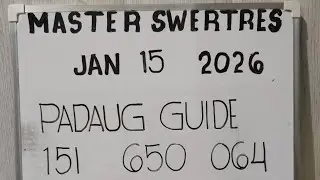 MASTER SWERTRES
JAN 15 2026
PADAUG GUIDE
151 650 064